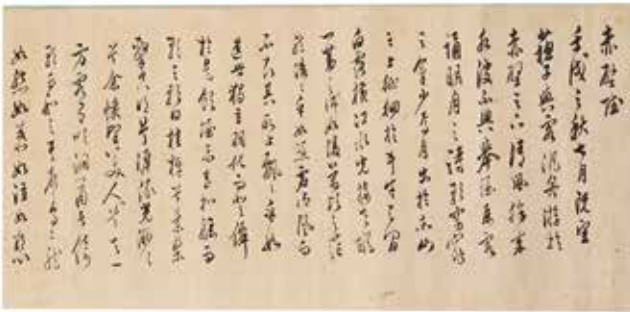 赤壁賦
壬戌之秋七月既望
蘇子與客泛舟游於
赤壁之下清風徐來
水波不興舉酒屬客
誦明月之詩歌窈窕
之章少焉月出於東山
之上徘徊於斗牛之間
白露橫江水光接天縱
一葦之所如凌萬頃之茫
然浩浩乎如馮虛御風而
不知其所止飄飄乎如
遺世獨立羽化而登僊
於是飲酒樂甚扣舷而
歌之歌曰桂棹兮蘭槳
擊空明兮泝流光渺渺
兮余懷望美人兮天一
方客有吹洞簫者倚
歌而和之其聲嗚嗚然
如怨如慕如泣如訴